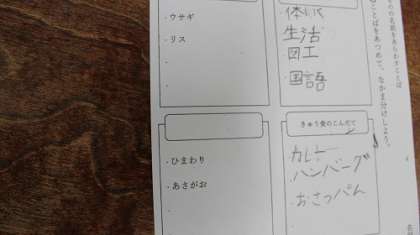 ことばをあつめて、なかま分けしよう。
体いく
生活
図工
国語
・ウサギ
・リス
きゅう食のこんだて
カレー
ハンバーグ
おさつパん
・ひまわり
・あさがお